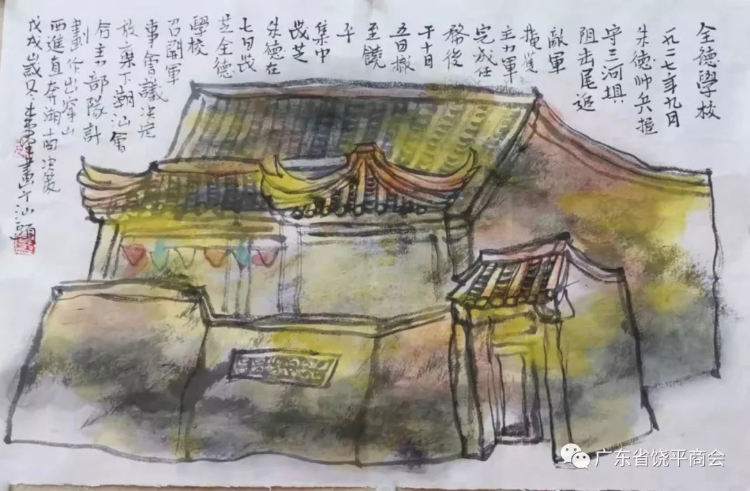 全德學校
一九二七年九月
朱德帅兵担
守三河埧
阻击尾追
敵軍
掩護
主力軍
完成任
務後
于十月
五日搬
至饒
平
集中
茂芝
朱德在
七日茂
芝全德
學校
召開軍
事會議決定
放棄下潮汕會
合主力部隊計
劃作出穿山
西進直奔湘南決策
戊戌歲又畫于汕頭
广东省饶平商会